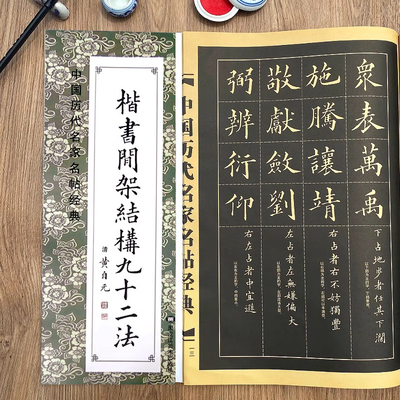 中国历代名家名帖经典
楷書閒架結構九十二法
清 黄自元
衆表萬禹
下占地步者任其下濶
施騰讓靖
右占者右不妨獨豐
敬獻斂劉
左占者左無嫌偏大
弼辨衍仰
右左占者中宜遜
【中国历代名家名帖经典】